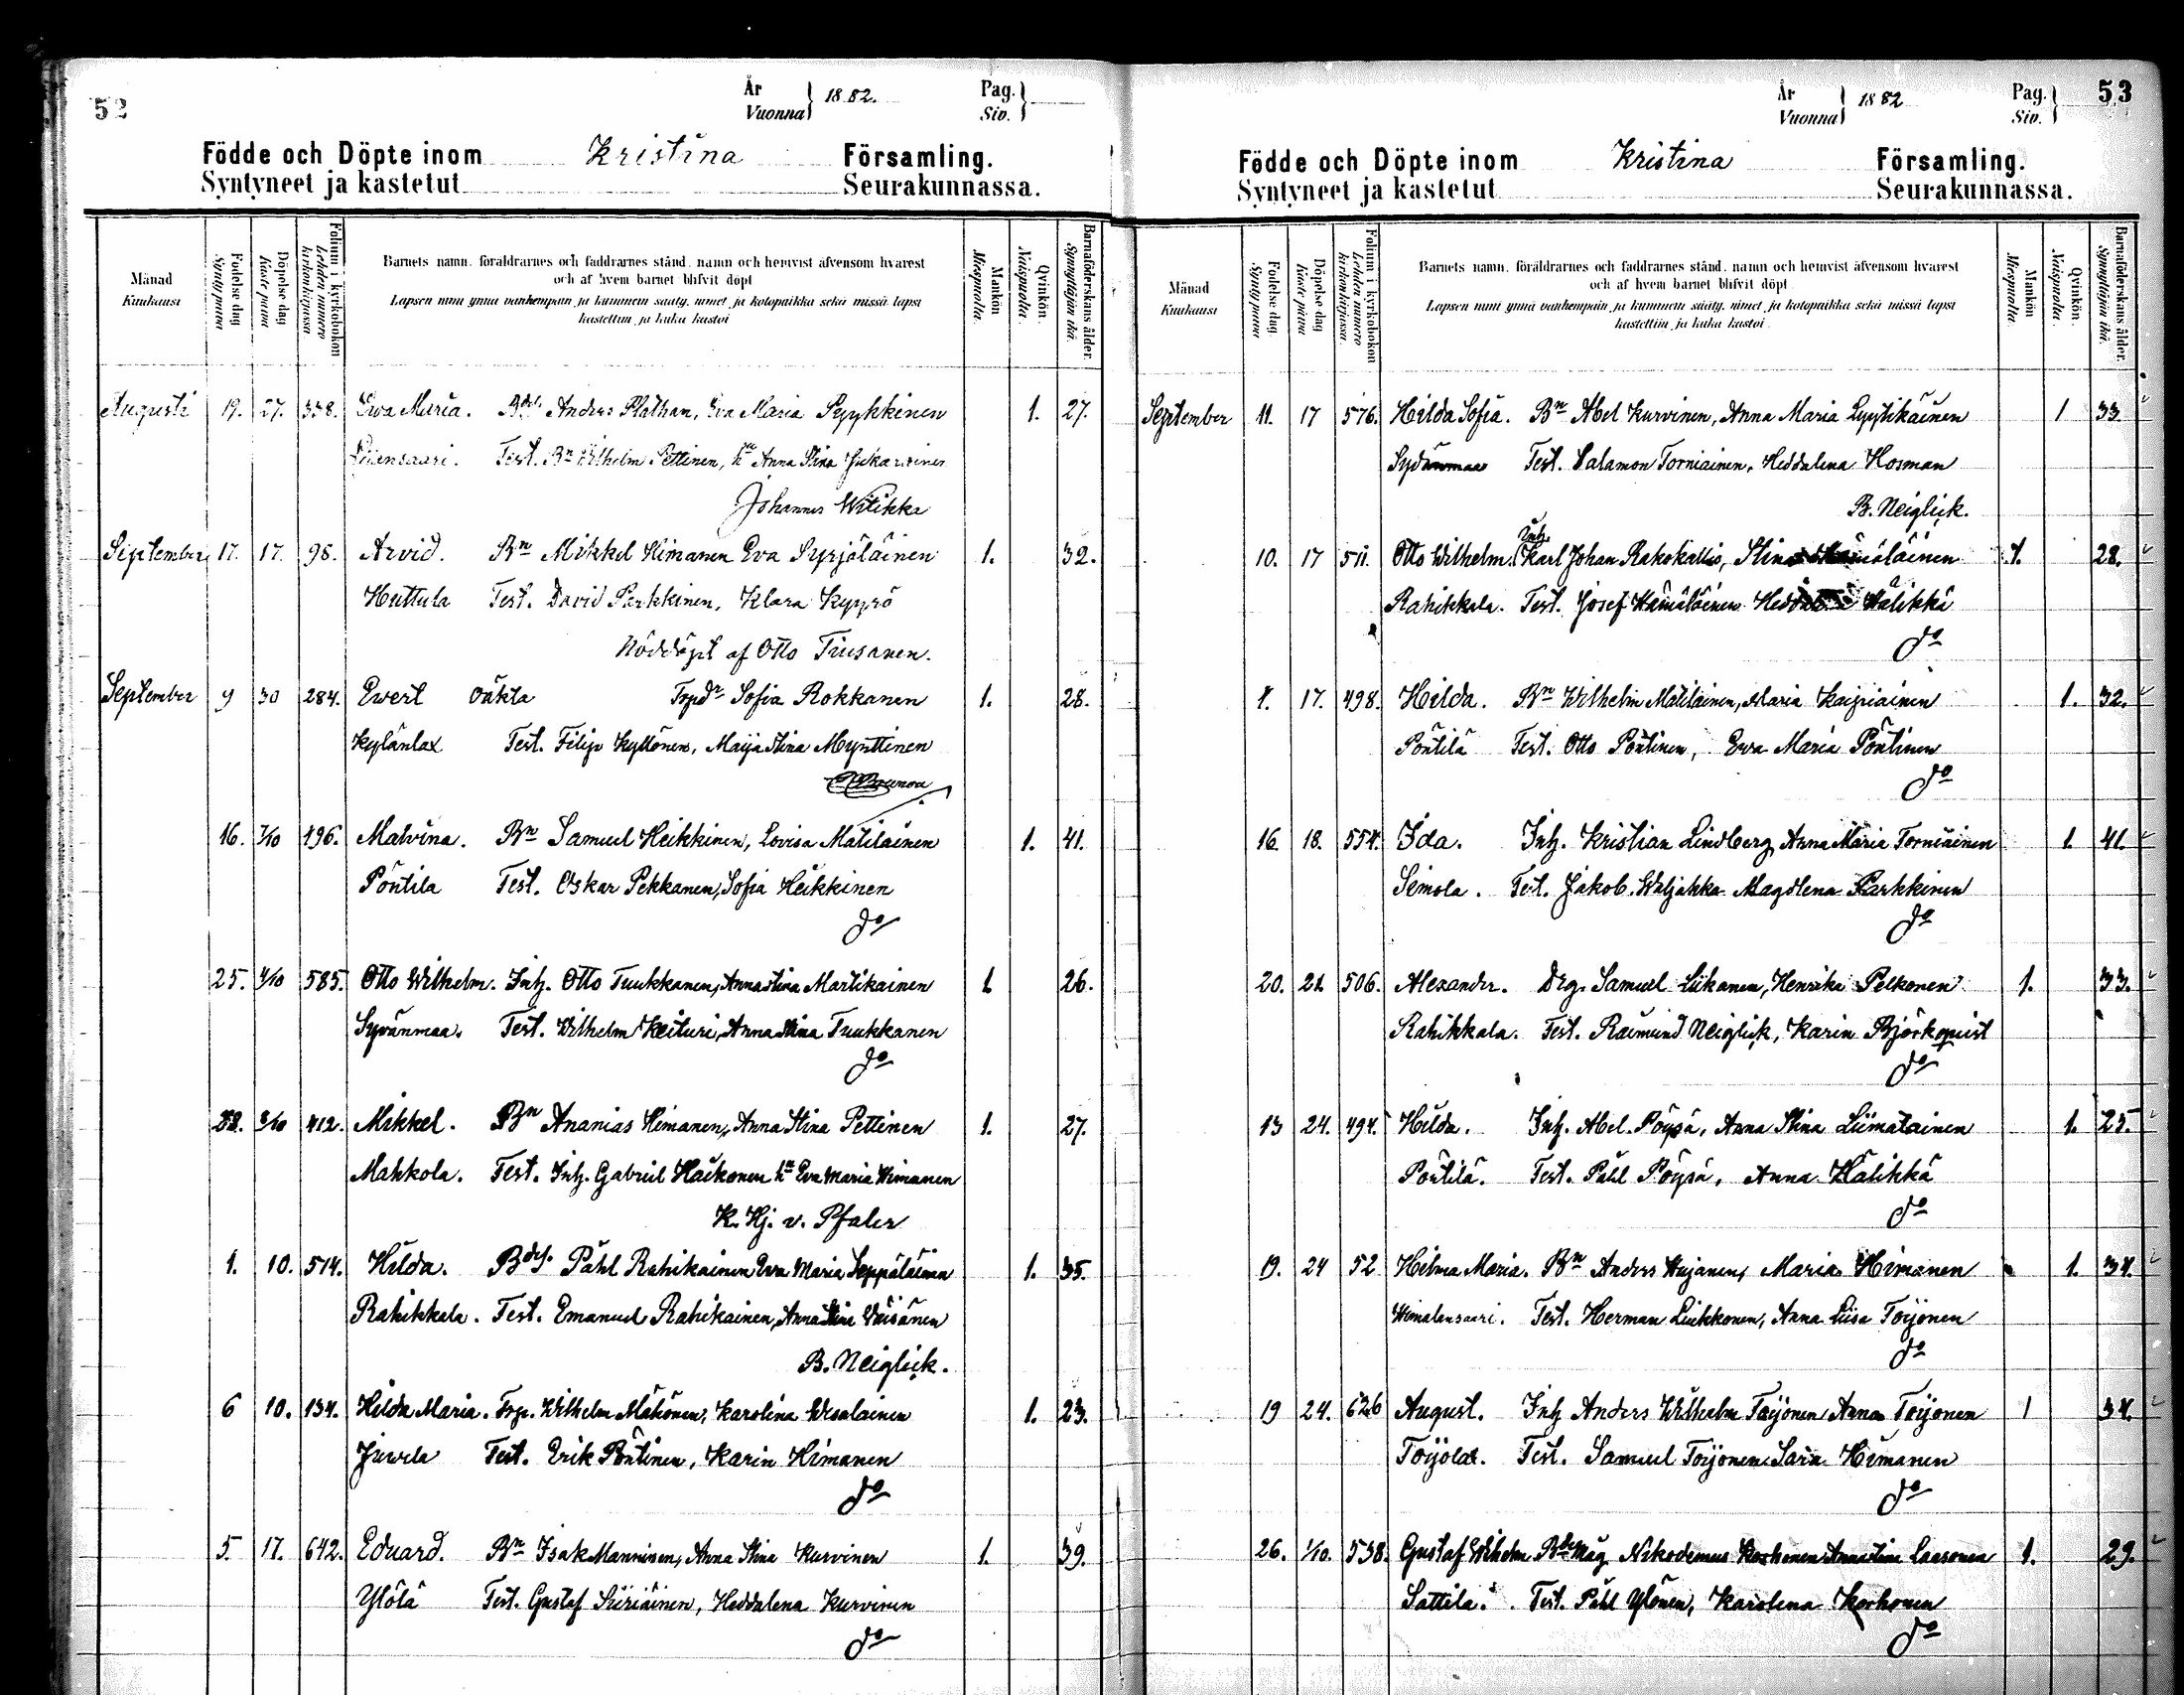 52
År
Vuonna
1882.
Pag.
Siv.
Födde och Döpte inom Kristina Församling.
Syntyneet ja kastetut Seurakunnassa.
Månad
Kuukausi
Födelse dag
Synty päivä
Döpelse dag
Kaste päivä
Folium i kyrkoboken
Lehden numero kirkonkirjassa
Barnets namn, föräldrarnes och faddrarnes stånd, namn och hemvist äfvensom hvarest
och af hvem barnet blifvit döpt
Lapsen nimi ynnä vanhempain ja kummein sääty, nimet ja kotopaikka sekä missä lapsi
kastettiin ja kuka kastoi
Mankön
Miespuolia.
Qvinkön.
Naispuolia.
Barnaföderskans ålder.
Synnyttäjän ikä.
Augusti 19. 27. 338. Ewa Maria. Anders Platham, Eva Maria Pyykkinen 1. 27.
Test. Bn Wilhelm Pettinen, hu Anna Stina
Johannes Witikka
September 17. 17. 98. Arvid. Bn Mikkel Himanen Eva Syrjäläinen 1. 32.
Huttula Test. David Parkkinen, Klara Kyyrö
Nöddöpt af Otto Tiusanen.
September 9 30 284. Ewert oäkta Torpdr Sofia Rokkanen 1. 28.
Kylänlax Test. Filip Kyttönen, Maija Stina Mynttinen
16. 1/10 196. Malvina. Bn Samuel Heikkinen, Lovisa Matilainen 1. 41.
Pöntilä Test. Oskar Pekkanen, Sofia Heikkinen
do
25. 4/10 585. Otto Wilhelm. Inh. Otto Tuukkanen, Anna Stina Martikainen 1 26.
Syvänmaa. Test. Wilhelm Keituri, Anna Stina Tuukkanen
do
28. 3/10 412. Mikkel. Bn Ananias Himanen, Anna Stina Pettinen 1. 27.
Mahkola. Test. Inh. Gabriel Haikonen hu Eva Maria Himanen
K. Hj. v. Pfaler
1. 10. 514. Hilda. Bds. Påhl Rahikainen Eva Maria Seppäläinen 1. 35.
Rahikkala. Test. Emanuel Rahikainen, Anna Stina Väisänen
B. Neiglick.
6 10. 134. Hilda Maria. Torp. Wilhelm Mähönen, Karolina Wesalainen 1. 23.
Test. Erik Pöntinen, Karin Himanen
do
5. 17. 642. Eduard. Bn Isak Manninen, Anna Stina Kurvinen 1. 39.
Ylölä Test. Gustaf Siiriäinen, Heddalena Kurvinen
do
53
År
Vuonna
1882
Pag.
Siv.
Födde och Döpte inom Kristina Församling.
Syntyneet ja kastetut Seurakunnassa.
Månad
Kuukausi
Födelse dag
Synty päivä
Döpelse dag
Kaste päivä
Folium i kyrkoboken
Lehden numero kirkonkirjassa
Barnets namn, föräldrarnes och faddrarnes stånd, namn och hemvist äfvensom hvarest
och af hvem barnet blifvit döpt
Lapsen nimi ynnä vanhempain ja kummein sääty, nimet ja kotopaikka sekä missä lapsi
kastettiin ja kuka kastoi
Mankön
Miespuolia.
Qvinkön.
Naispuolia.
Barnaföderskans ålder.
Synnyttäjän ikä.
September 11. 17 576. Hilda Sofia. Bn Abel Kurvinen, Anna Maria Lyytikäinen 1 33
Sydänmaa Test. Salamon Torniainen, Heddalena Hosman
B. Neiglick.
10. 17 511. Otto Wilhelm. Inh. Karl Johan Rakokallio, Stina Hämäläinen 1. 28.
Rahikkala. Test. Josef Hämäläinen Hälikkä
do
1. 17. 498. Hilda. Bn Wilhelm Matilainen, Maria Kaipiainen 1. 32.
Pöntilä Test. Otto Pöntinen, Ewa Maria Pöntinen
do
16. 18. 554. Ida. Inh. Kristian Lindberg, Anna Maria Torniainen 1. 41.
Simola. Test. Jakob Waljakka Magdlena Parkkinen
do
20. 21. 506. Alexander. Drg. Samuel Liikanen, Henrika Pelkonen 1. 33.
Rahikkala. Test. Raimund Neiglick, Karin Björkqvist
do
13 24. 494. Hilda. Inh. Abel Pöysä, Anna Stina Liimatainen 1. 25.
Pöntilä. Test. Påhl Pöysä, Anna Hälikkä
do
19. 24 52 Hilma Maria. Bn Anders Aujanen, Maria Himanen 1. 34.
Himalansaari. Test. Herman Liukkonen, Anna Liisa Toijonen
do
19 24. 626 August. Inh Anders Wilhelm Toijonen Anna Toijonen 1 34.
Toijola. Test. Samuel Toijonen Sara Himanen
do
26. 1/10. 538. Gustaf Wilhelm Bde Måg Nikodemus Korhonen Anna Stina Laasonen 1. 29.
Sattila. Test. Påhl Ylönen, Karolina Korhonen
do